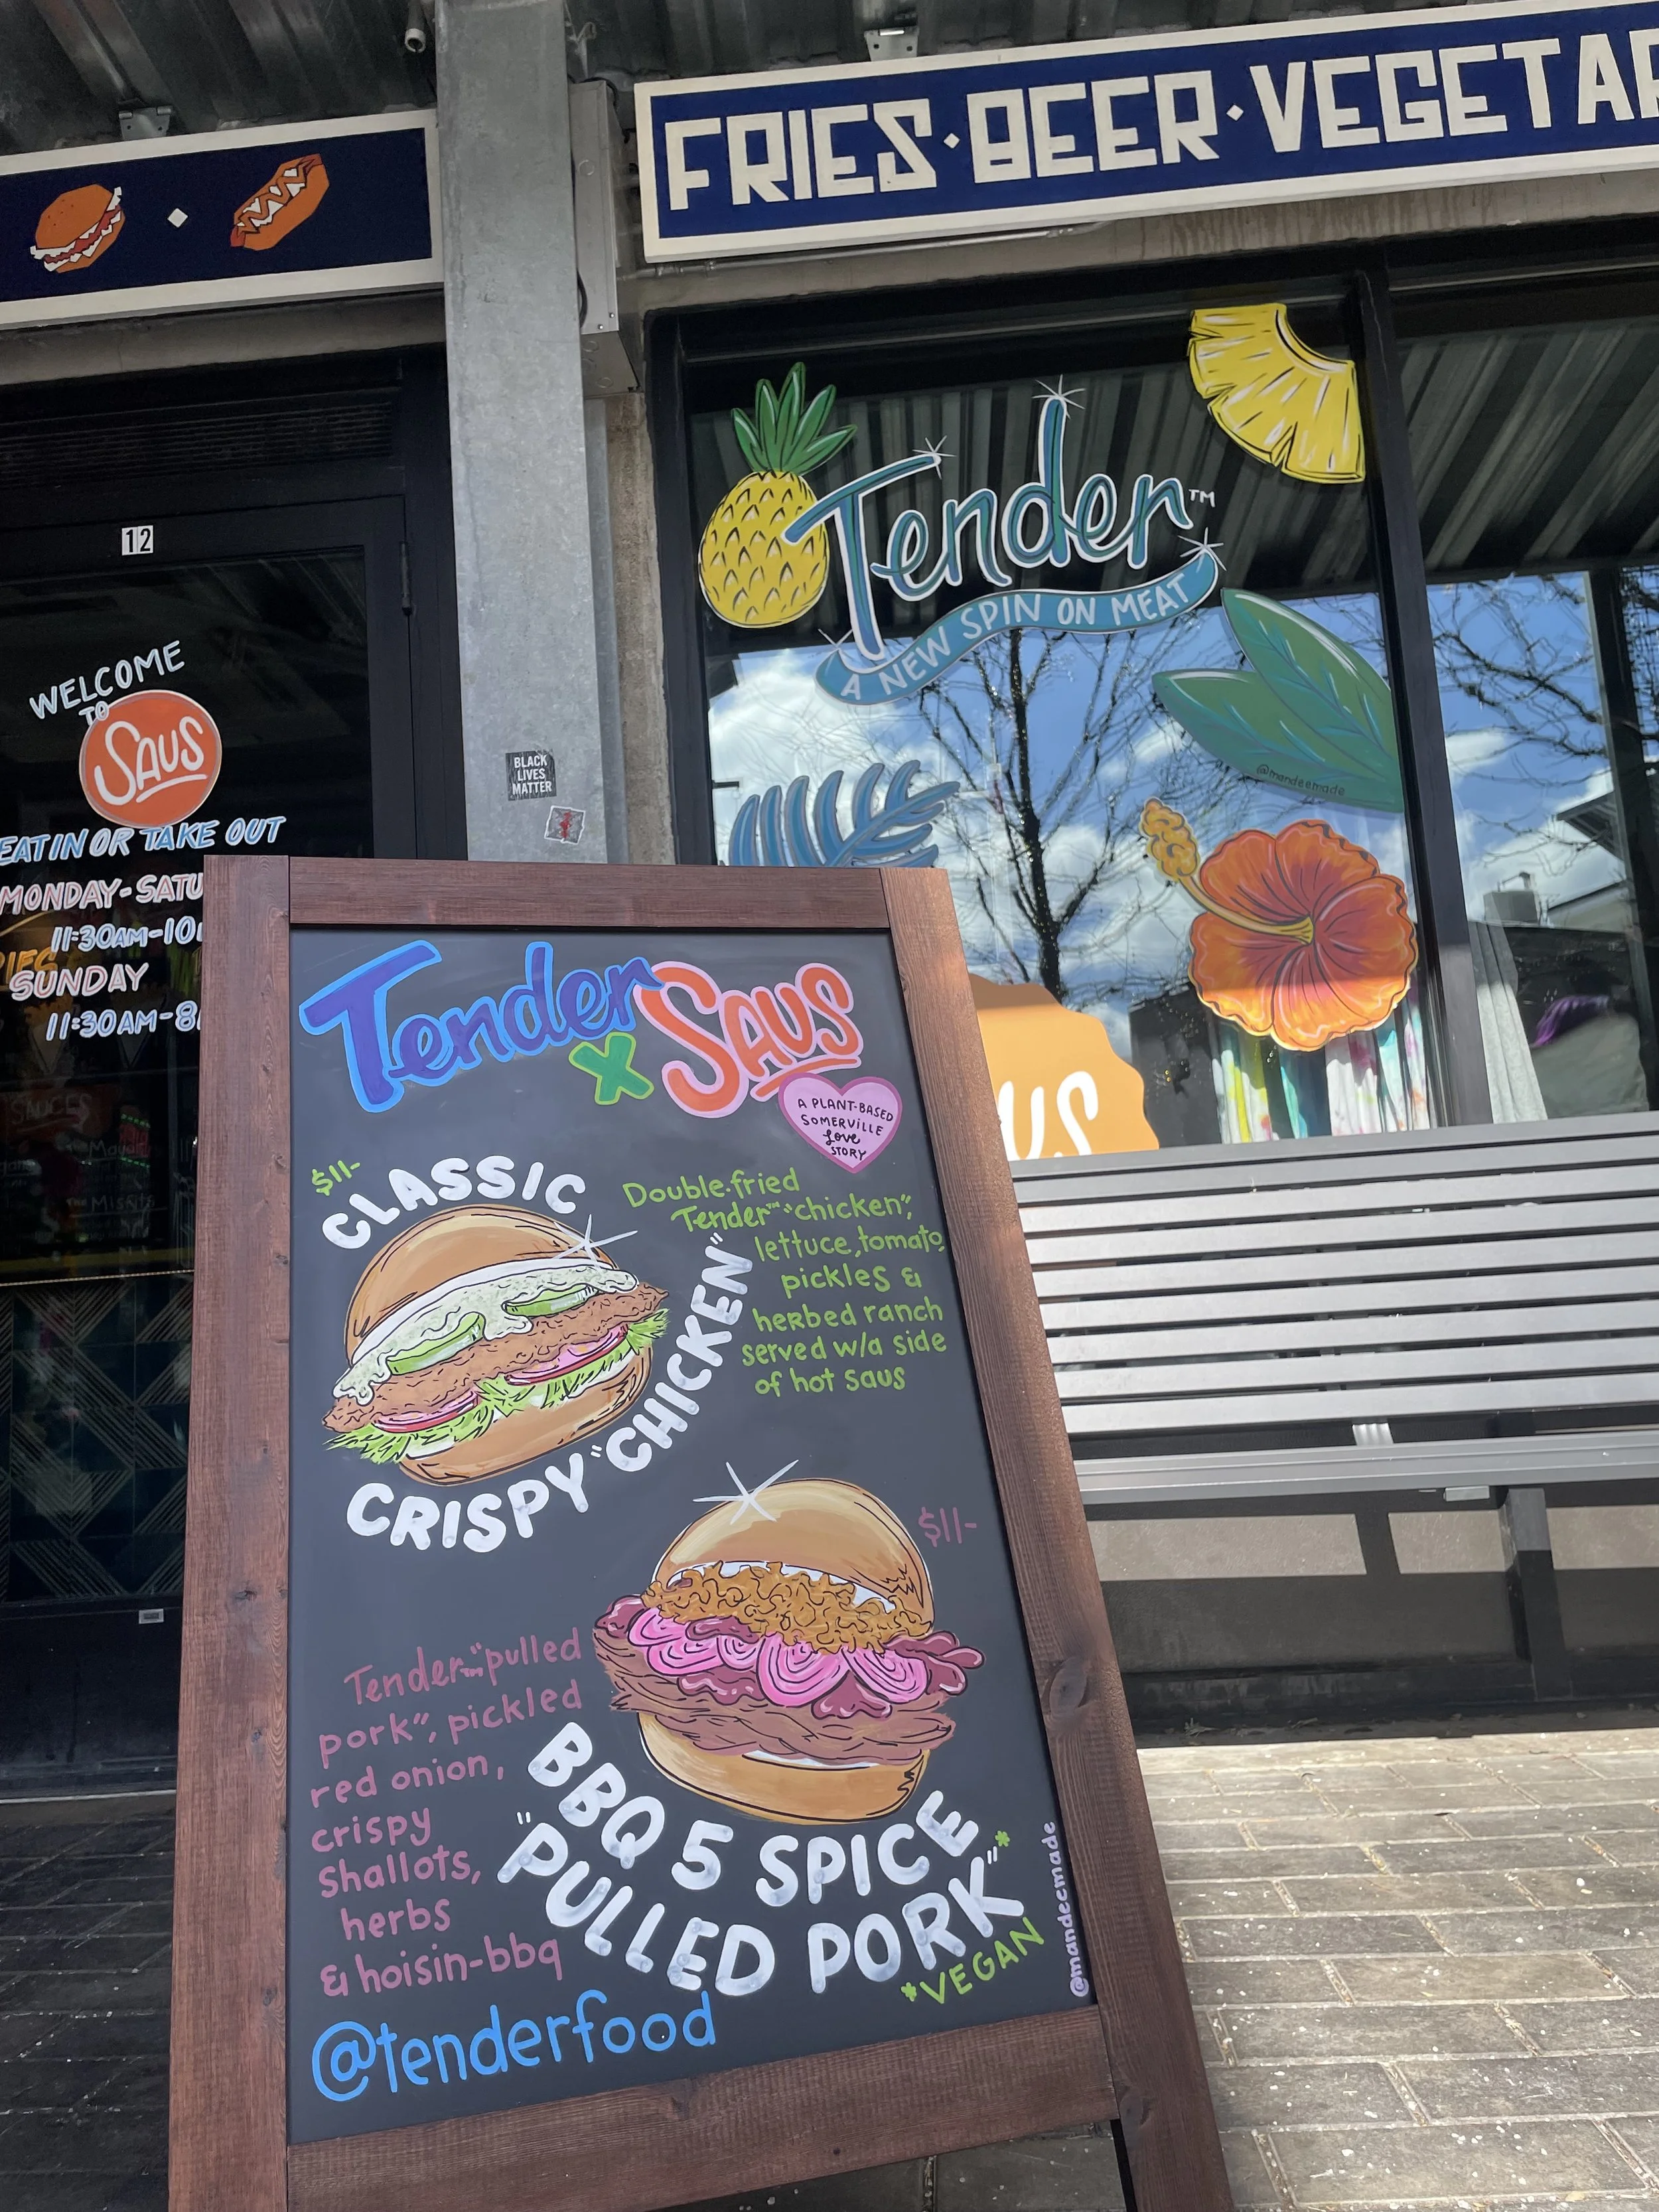 FRIES·BEER·VEGETAR
12
WELCOME
TO
SAUS
EAT IN OR TAKE OUT
MONDAY-SATU
11:30AM-10
SUNDAY
11:30AM-8
SAUCES
BLACK
LIVES
MATTER
Tender™
A NEW SPIN ON MEAT
@mandeemade
US
Tender
X
SAUS
A PLANT-BASED
SOMERVILLE
Love
STORY
$11-
CLASSIC
CRISPY "CHICKEN"
Double-fried
Tender™ "chicken",
lettuce, tomato,
pickles &
herbed ranch
served w/a side
of hot saus
$11-
BBQ 5 SPICE
"PULLED PORK"*
*VEGAN
Tender™ "pulled
pork", pickled
red onion,
crispy
shallots,
herbs
& hoisin-bbq
@tenderfood
@mandeemade